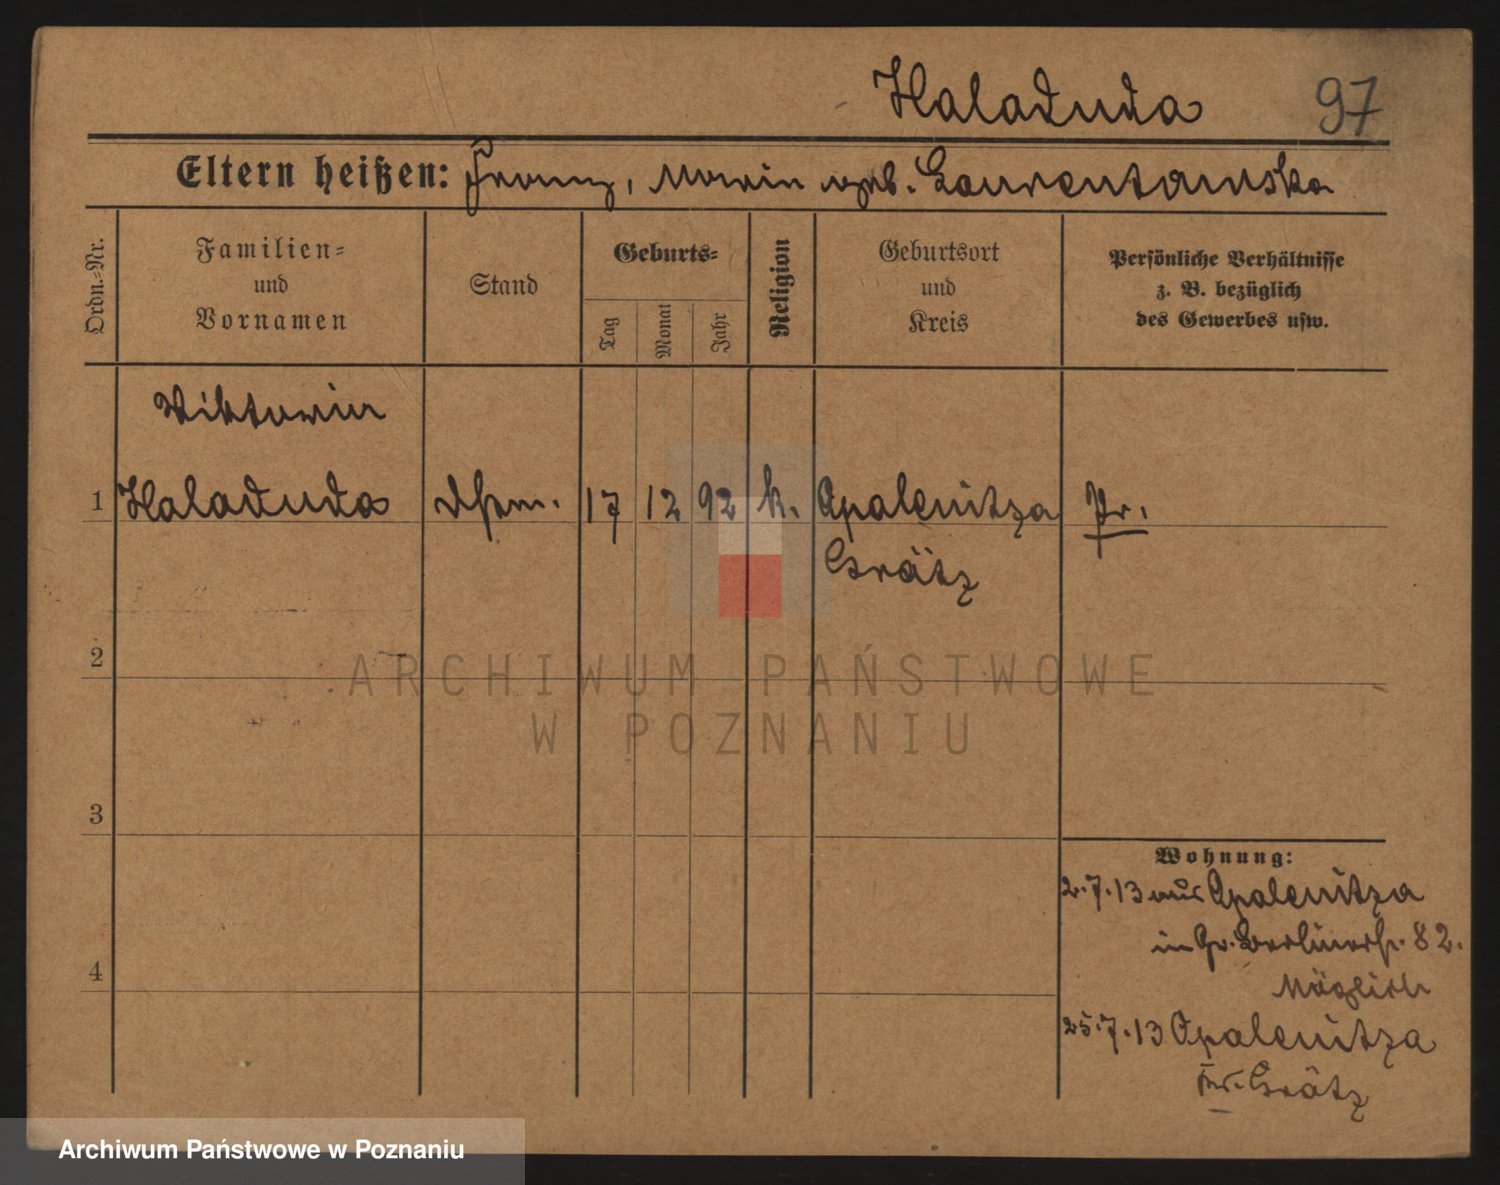 Haladuda 97
Eltern heißen: Franz, Marie geb. Laurentowska
Ordn.-Nr.
Familien-
und
Vornamen
Stand
Geburts-
Tag
Monat
Jahr
Religion
Geburtsort
und
Kreis
Persönliche Verhältnisse
z. B. bezüglich
des Gewerbes usw.
Viktoria
1 Haladuda 17 12 92 k. Opalenitza Pr.
Grätz
2
ARCHIWUM PAŃSTWOWE
W POZNANIU
3
Wohnung:
2.7.13 aus Opalenitza
in Gr. Berlinerstr. 82.
4
25.7.13 Opalenitza
Kr. Grätz
Archiwum Państwowe w Poznaniu